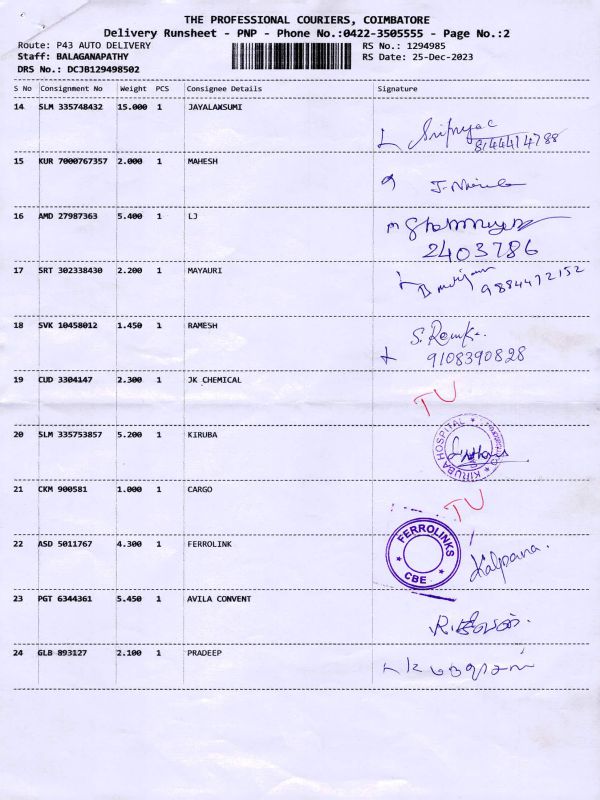 THE PROFESSIONAL COURIERS, COIMBATORE
Delivery Runsheet - PNP - Phone No.:0422-3505555 - Page No.:2
Route: P43 AUTO DELIVERY RS No.: 1294985
Staff: BALAGANAPATHY RS Date: 25-Dec-2023
DRS No.: DCJB129498502
S No Consignment No Weight PCS Consignee Details Signature
14 SLM 335748432 15.000 1 JAYALAXSUMI
8144414788
15 KUR 7000767357 2.000 1 MAHESH
16 AMD 27987363 5.400 1 LJ
2403786
17 SRT 302338430 2.200 1 MAYAURI
9884472152
18 SVK 10458012 1.450 1 RAMESH
9108390828
19 CUD 3304147 2.300 1 JK CHEMICAL
TU
20 SLM 335753857 5.200 1 KIRUBA
KIRUBA HOSPITAL
21 CKM 900581 1.000 1 CARGO
TU
22 ASD 5011767 4.300 1 FERROLINK
FERROLINKS CBE
Kalpana.
23 PGT 6344361 5.450 1 AVILA CONVENT
24 GLB 893127 2.100 1 PRADEEP